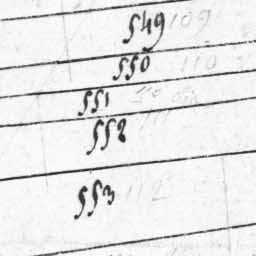 549 109
550 110
551
552 111
553 112